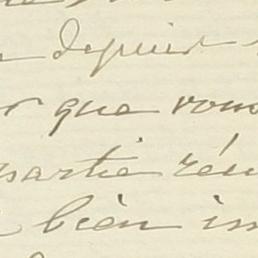 depuis
que vous
partie réu
bien im